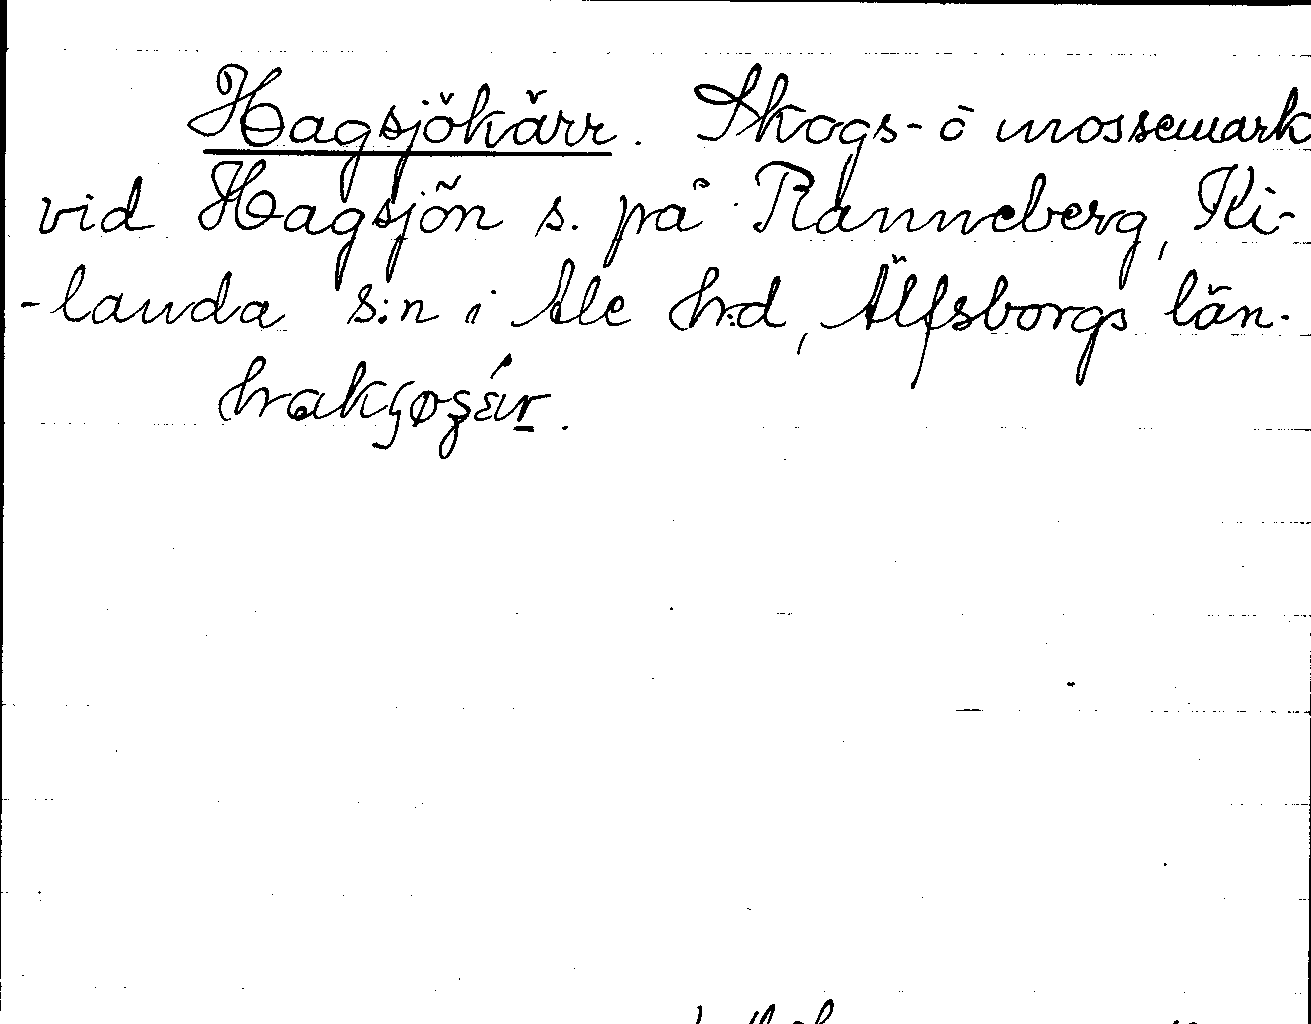 Hagsjökärr. Skogs- o mossemark
vid Hagsjön s. på Ranneberg, Ki-
-landa s:n i Ale h:d, Älfsborgs län.